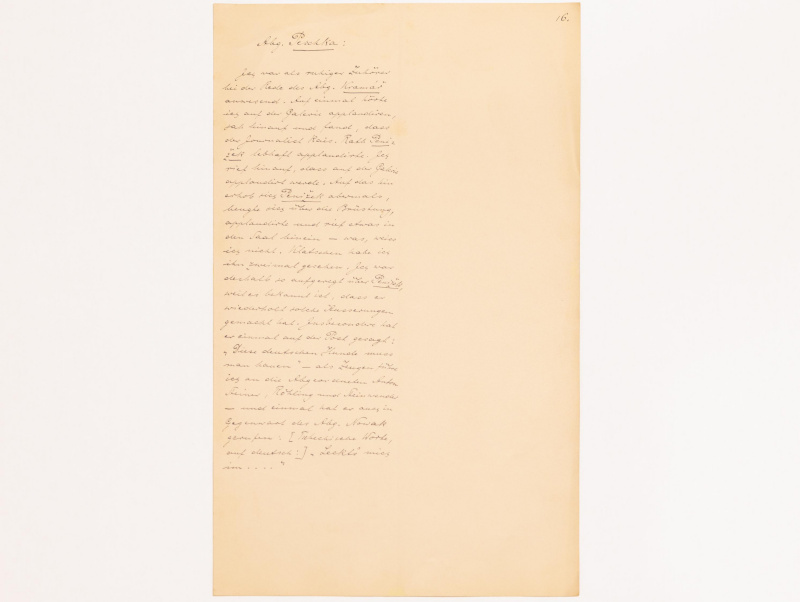 16.
Abg. Peschka:
Ich war als ruhiger Zuhörer
bei der Rede des Abg. Kramář
anwesend. Auf einmal hörte
ich auf der Galerie applaudiren,
sah hinauf und fand, dass
der Journalist Kais. Rath Peni-
žek lebhaft applaudirte. Ich
rief hinauf, dass auf der Galerie
applaudirt werde. Auf das hin
erhob sich Penižek abermals,
beugte sich über die Brüstung,
applaudirte und rief etwas in
den Saal hinein – was, weiss
ich nicht. Klatschen habe ich
ihn zweimal gesehen. Ich war
deshalb so aufgeregt über Penižek,
weil es bekannt ist, dass er
wiederholt solche Äusserungen
gemacht hat. Insbesondere hat
er einmal auf der Post gesagt:
„Diese deutschen Hunde muss
man hauen" – als Zeugen führe
ich an die Abgeordneten Anton
Steiner, Röhling und
– und einmal hat er auch in
Gegenwart des Abg. Nowak
gerufen: [Tschechische Worte,
auf deutsch:] „Leckts mich
im ...."